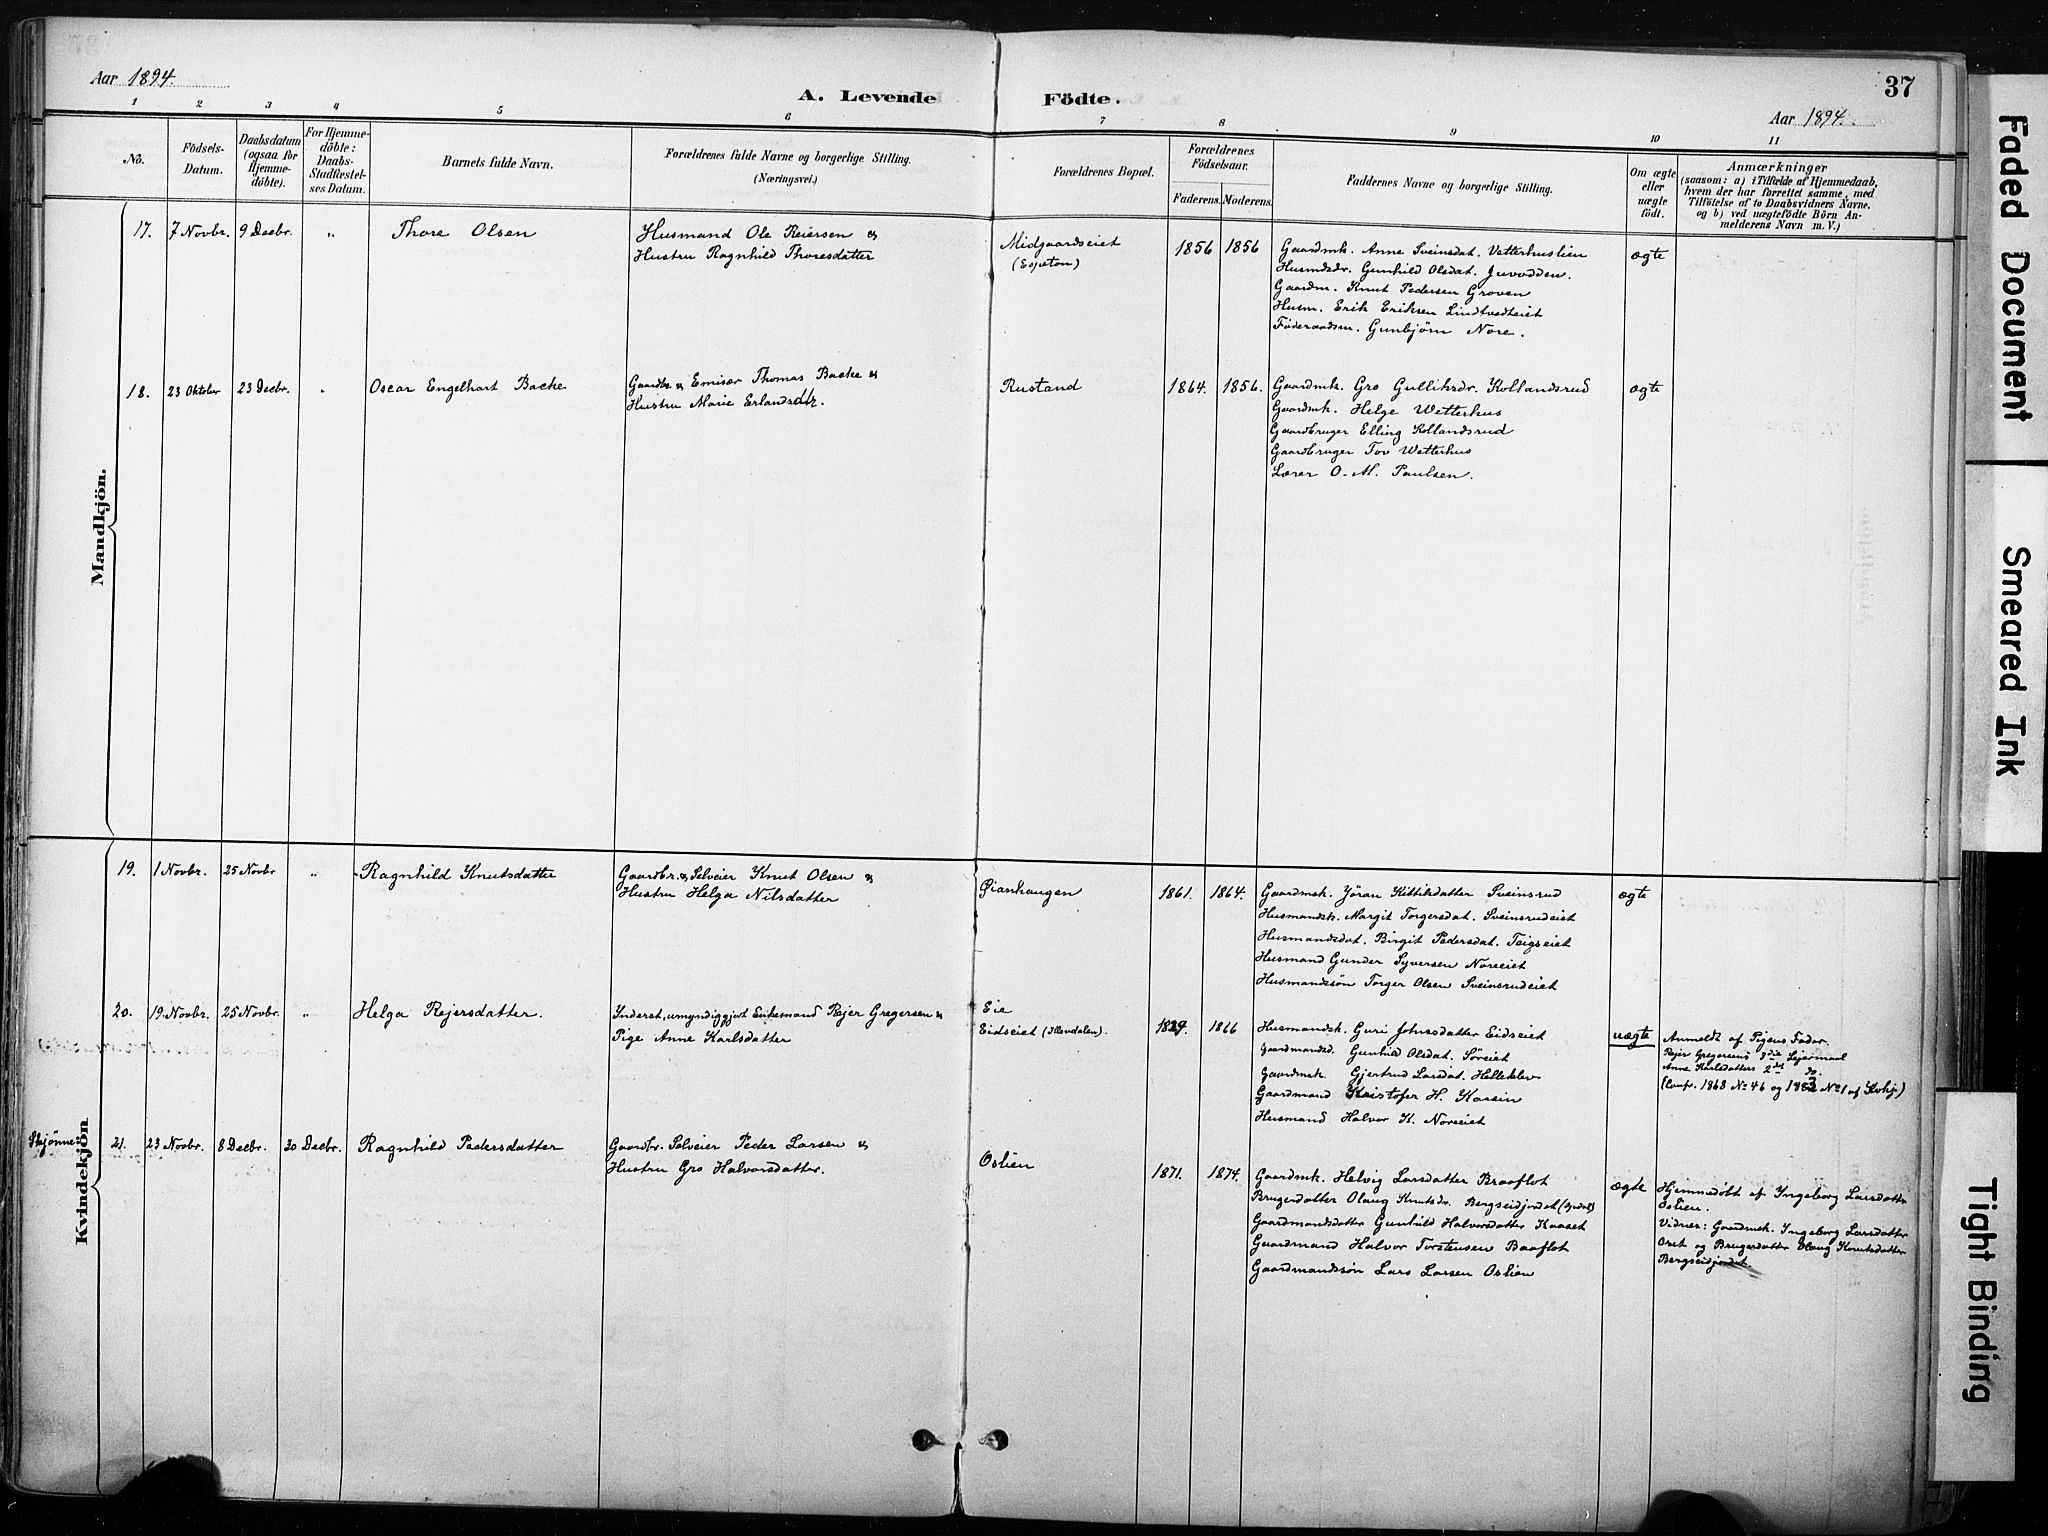 Aar 1894.
A. Levende Födte.
37
Aar 1894.
1 2 3 4 5 6 7 8 9 10 11
No.
Födsels-
Datum.
Daabsdatum
(ogsaa for
Hjemme-
döbte).
For Hjemme-
döbte:
Daabs-
Stadfæstel-
ses Datum.
Barnets fulde Navn.
Forældrenes fulde Navne og borgerlige Stilling.
(Næringsvei.)
Forældrenes Bopæl.
Forældrenes
Födselsaar.
Faderens. Moderens.
Faddernes Navne og borgerlige Stilling.
Om ægte
eller
uægte
födt.
Anmærkninger
(saasom: a) i Tilfælde af Hjemmedaab,
hvem der har forrettet samme, med
Tilföielse af to Daabsvidners Navne.
og b) ved uægtefödte Börn An-
melderens Navn m. V.)
Mandkjön.
17. 7 Novbr. 9 Decbr. " Thore Olsen
Husmand Ole Reiersen &
Hustru Ragnhild Thoresdatter
Midgaardseiet
(Espeton)
1856 1856
Gaardmk. Anne Sveinsdat. Vetterhuslien
Husmdsdr. Gunhild Olsdat. Juvodden.
Gaardm. Knut Pedersen Groven
Husm. Erik Eriksen Lindtvedteiet
Föderaadsm. Gunbjörn Nore.
ægte
18. 23 Oktober 23 Decbr. " Oscar Engelhart Backe
Gaardbr. & Emisær Thomas Backe &
Hustru Marie Erlandsdtr.
Rustand
1864. 1856.
Gaardmk. Gro Gulliksdr. Kollandsrud
Gaardmk. Helge Wetterhus
Gaardbruger Elling Kollandsrud
Gaardbruger Tov Wetterhus
Lærer O. M. Paulsen.
ægte
Kvindekjön
19. 1 Novbr. 25 Novbr " Ragnhild Knutsdatter
Gaardbr. & Selveier Knut Olsen &
Hustru Helga Nilsdatter
Øianhaugen
1861. 1864.
Gaardmsk. Jöran Kittilsdatter Sveinsrud
Husmandsk. Margit Torgersdat. Sveinsrudeiet
Husmandsdat. Birgit Pedersdat. Teigseiet
Husmand Gunder Syversen Noreeiet
Husmandssön Torger Olsen Sveinsrudeiet
ægte
20. 19 Novbr. 25 Novbr. " Helga Rejersdatter.
Inderst, umyndiggjort Enkemand Rejer Gregersen &
Pige Anne Karlsdatter
Eie
Eidseiet (Nevdalen).
1829. 1866
Husmandsk. Guri Johnsdatter Eidseiet
Gaardmandsd. Gunhild Olsdat. Söreiet
Gaardmsk. Gjertrud Larsdat. Helleklev
Gaardmand Kristofer H. Kaasin
Husmand Halvor K. Noreeiet
uægte
Anmeldt af Pigens Fader.
Rejer Gregersens 3die Lejermaal
Anne Karlsdatters 2det do.
(Confr. 1868 No 46 og 1883 No 1 af Kvkj.)
Skjönne
21. 23 Novbr. 8 Decbr. 30 Decbr. Ragnhild Pedersdatter
Gaardbr. Selveier Peder Larsen &
Hustru Gro Halvorsdatter.
Oslien
1871. 1874.
Gaardmk. Helvig Larsdatter Braaflot
Brugerdatter Olaug Knutsdr. Bergseidjordet
Gaardmandsdatter Gunhild Halvorsdatter Kaaset
Gaardmand Halvor Torstensen Baaflot
Gaardmandssön Lars Larsen Oslien
ægte
Hjemmedöbt af Ingeborg Larsdatter
Oslien.
Vidner: Gaardmsk. Ingeborg Larsdatter
og Brugerdatter Olaug Knutsdatter
Bergseidjordet.
Faded Document
Smeared Ink
Tight Binding